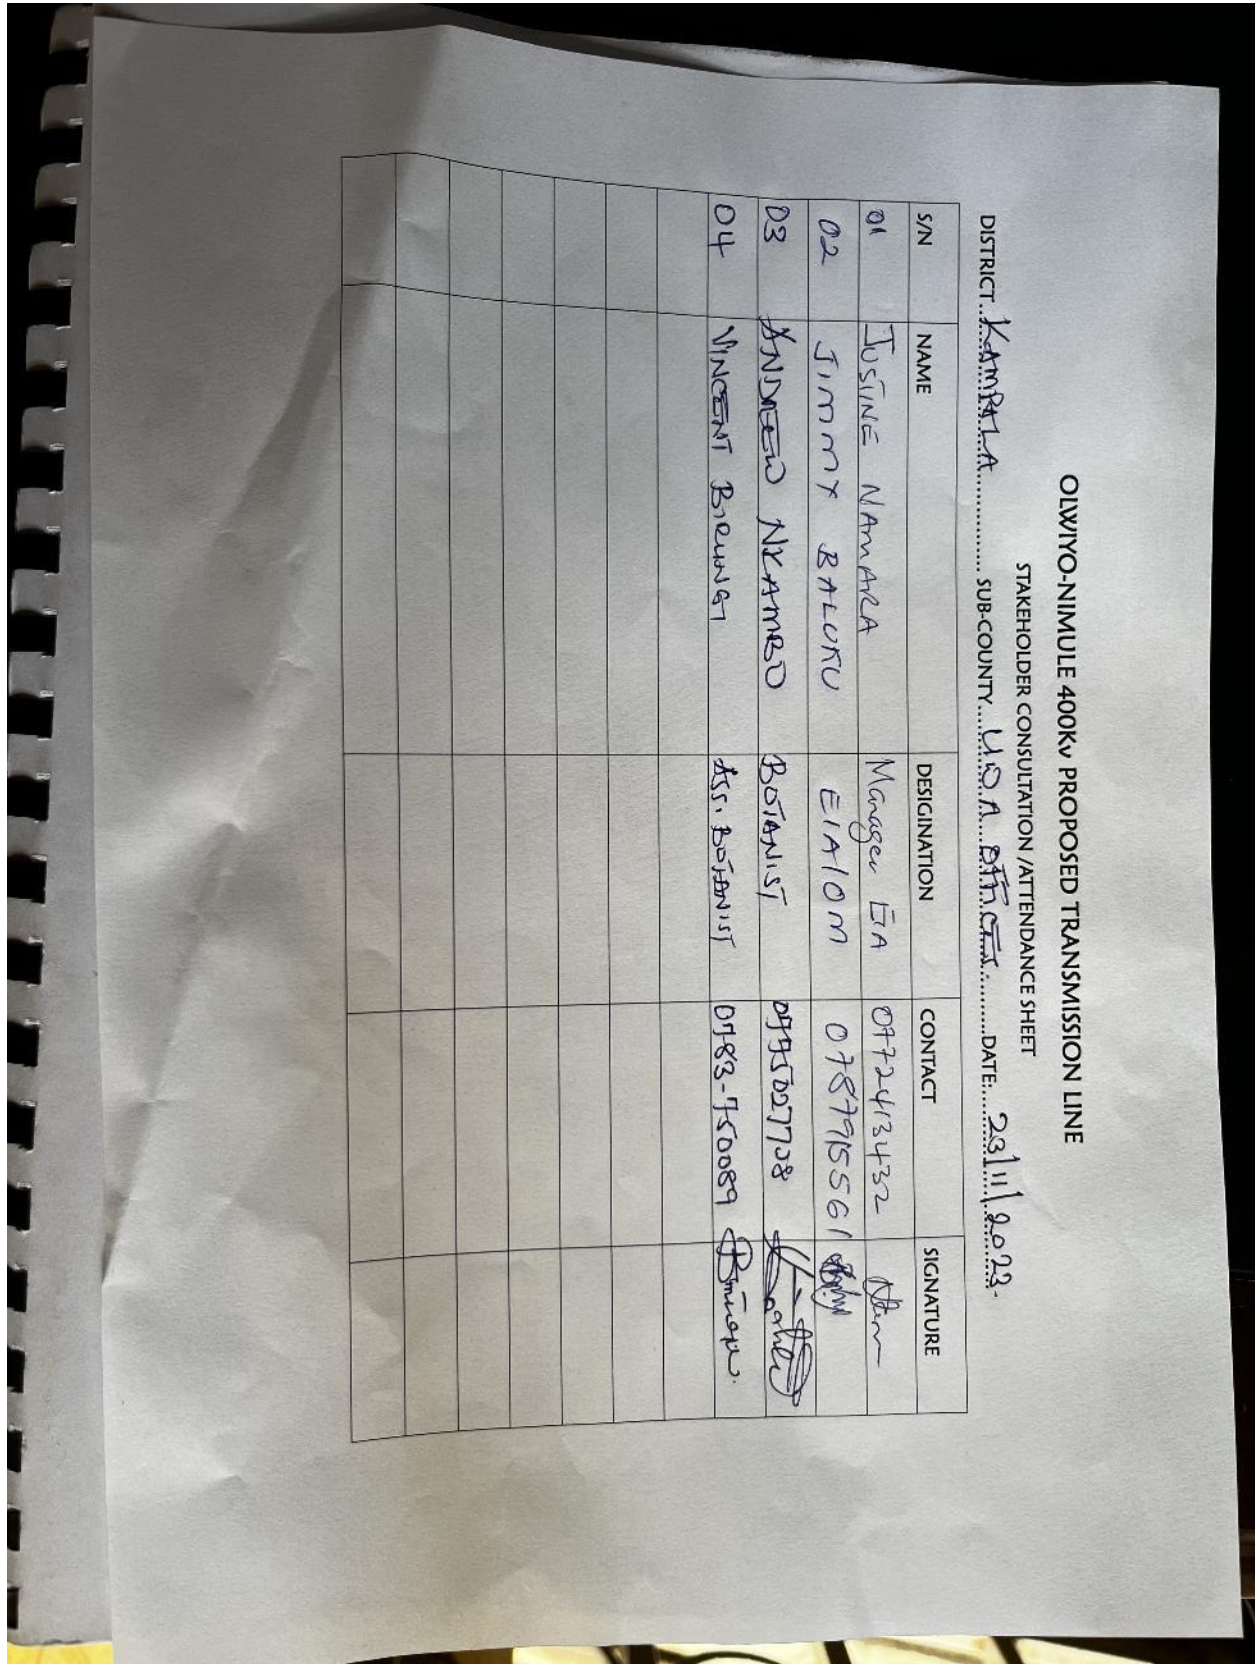 OLWIYO-NIMULE 400Kv PROPOSED TRANSMISSION LINE
STAKEHOLDER CONSULTATION /ATTENDANCE SHEET
DISTRICT..KAMPALA............ SUB-COUNTY....................DATE:....23/11/2023.
S/N NAME DESIGINATION CONTACT SIGNATURE
01 JUSTINE NAMARA Manager EIA 0772413432
02 JIMMY BALUKU EIA/OM 0787915561
03 ANDREW NYAMBO BOTANIST
04 VINCENT BIRUNGI ASS. BOTANIST 0783-750089